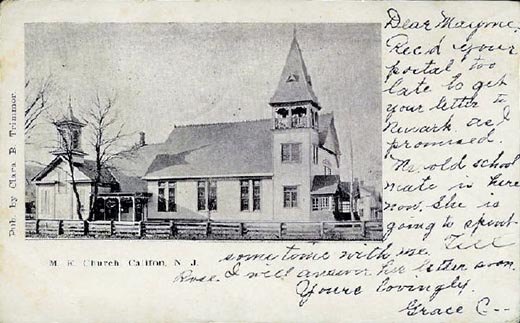 Pub. by Clara B. Trimmer.
M. E. Church, Califon, N. J.
Dear Mayme,
Rec'd your
postal too
late to get
your letter to
Newark as I
promised.
old school
mate is here
now. She is
going to spent
some time with me. Tell
Rose I will answer her letter soon.
Yours lovingly,
Grace C--